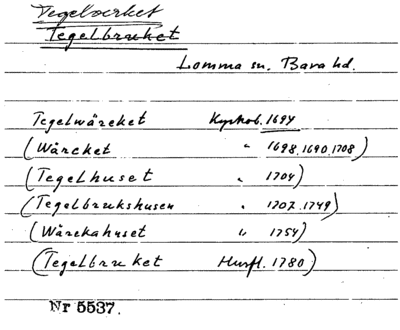 Tegelverket
Tegelbruket
Lomma sn. Bara hd.
Tegelwärcket Kyrkob. 1694
(Wärcket " 1698, 1690, 1708)
(Tegelhuset " 1704)
(Tegelbrukshusen " 1707, 1749)
(Wärckahuset " 1754)
(Tegelbruket Husfl. 1780)
Nr 5537.